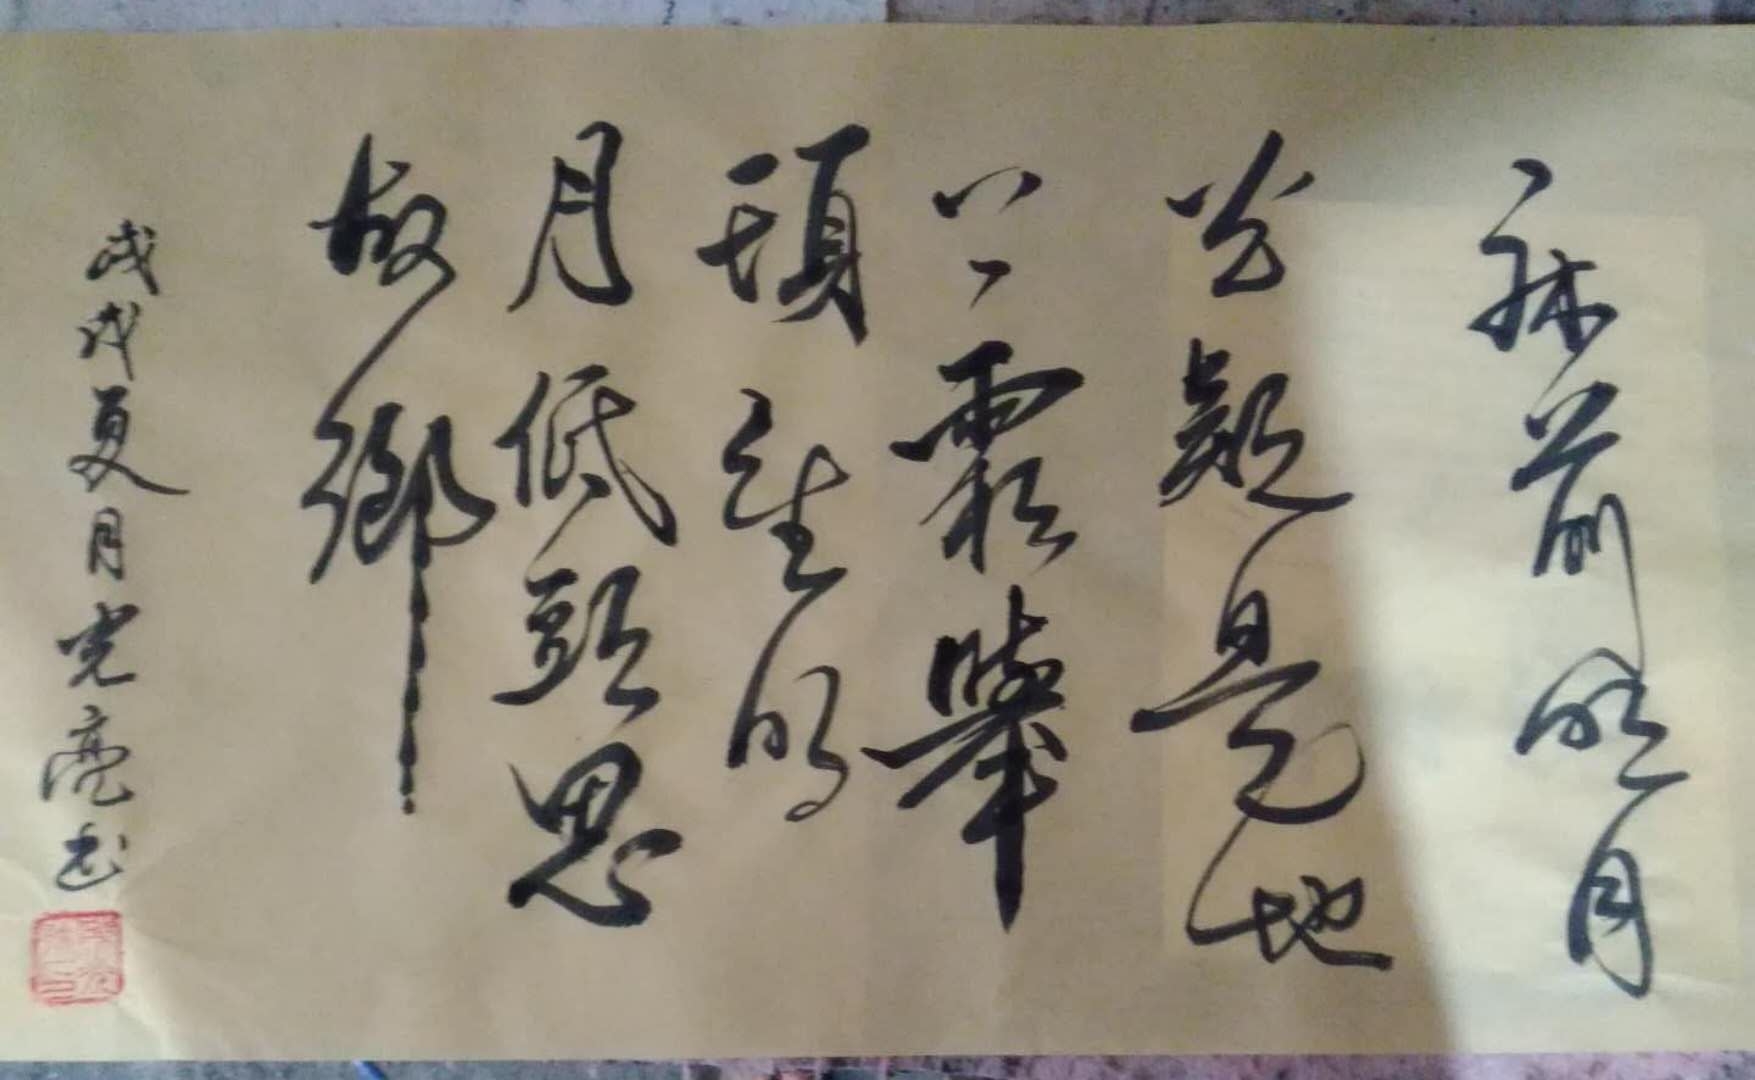 床前明月
光疑是地
上霜舉
頭望明
月低頭思
故鄉
戊戌夏月光亮书